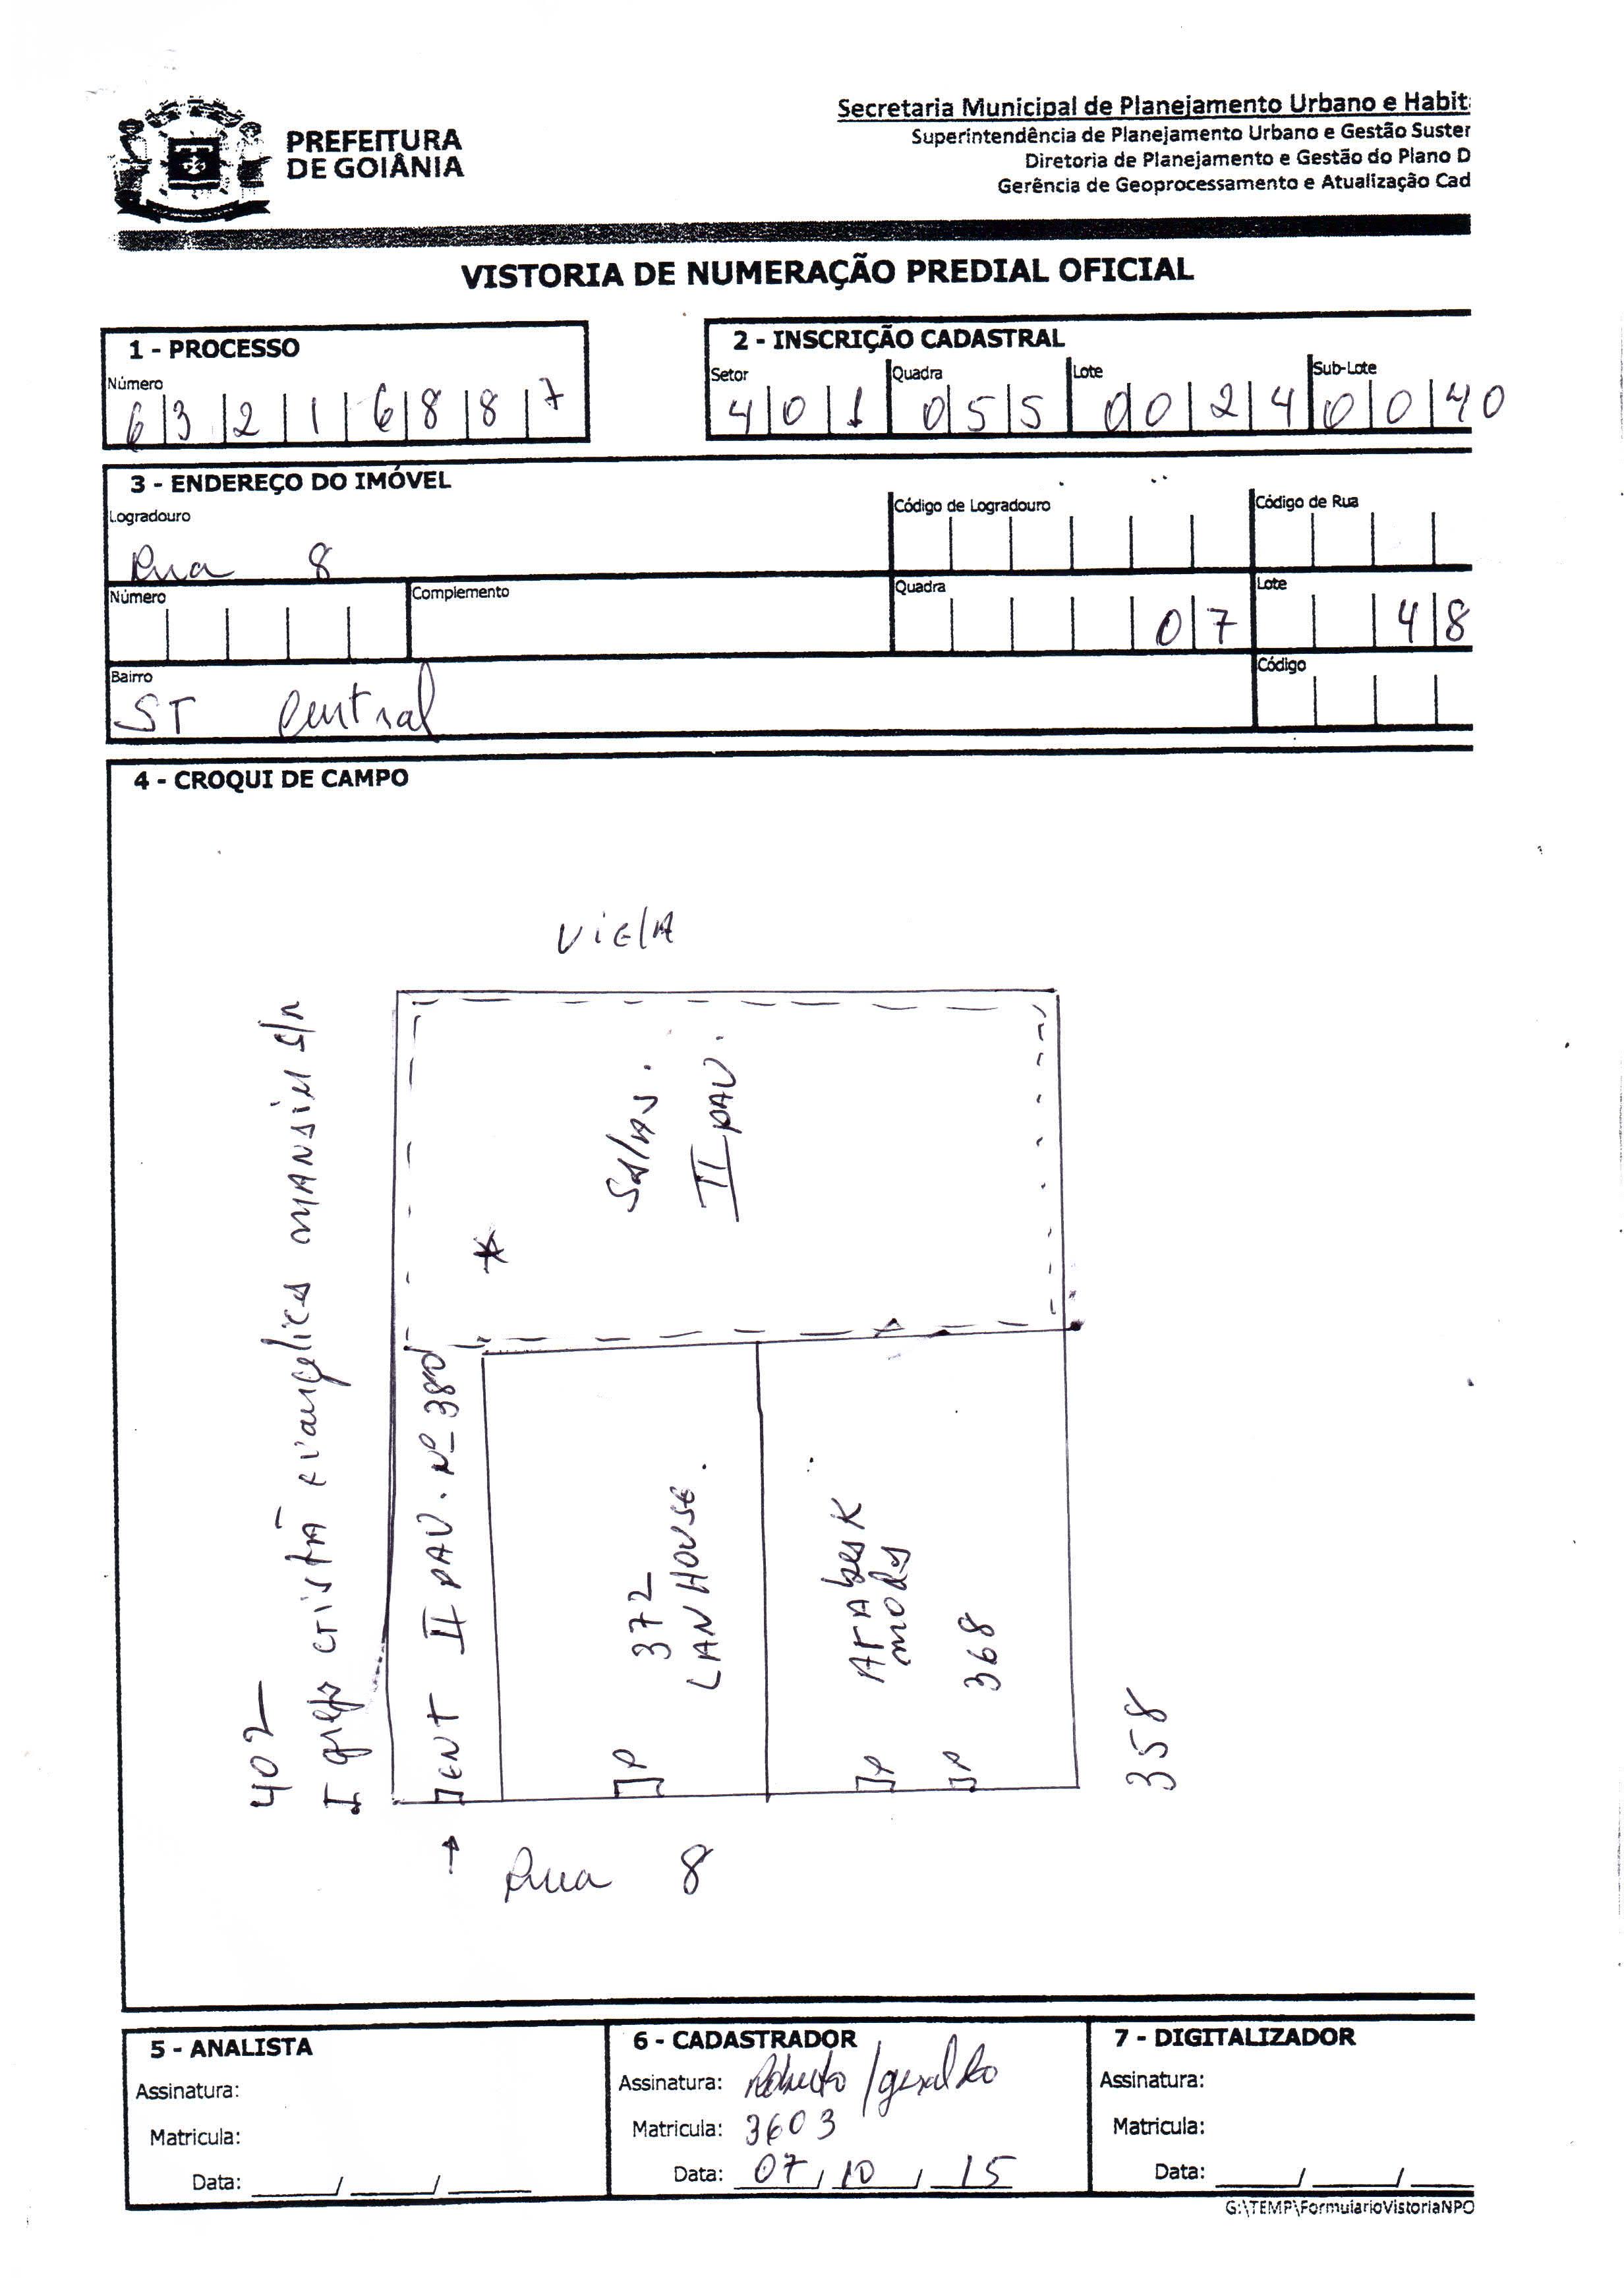 PREFEITURA
DE GOIÂNIA
Secretaria Municipal de Planejamento Urbano e Habit
Superintendência de Planejamento Urbano e Gestão Suster
Diretoria de Planejamento e Gestão do Plano D
Gerência de Geoprocessamento e Atualização Cad
VISTORIA DE NUMERAÇÃO PREDIAL OFICIAL
1 - PROCESSO
Número
6 3 2 1 6 8 8 7
2 - INSCRIÇÃO CADASTRAL
Setor Quadra Lote Sub-Lote
4 0 1 0 5 5 0 0 2 4 0 0 4 0
3 - ENDEREÇO DO IMÓVEL
Logradouro Código de Logradouro Código de Rua
Rua 8
Número Complemento Quadra Lote
0 7 4 8
Bairro Código
ST Central
4 - CROQUI DE CAMPO
Viela
402
Igreja cristã evangelica s/n
ENT II PAV. Nº 380
Salas.
II PAV.
372
LAN HOUSE.
Arabesk
modas
368
P
P
P
358
Rua 8
5 - ANALISTA
Assinatura:
Matricula:
Data: ___/___/___
6 - CADASTRADOR
Assinatura: Roberto / geraldo
Matricula: 3603
Data: 07/10/15
7 - DIGITALIZADOR
Assinatura:
Matricula:
Data: ___/___/___
G:\TEMP\FormularioVistoriaNPO